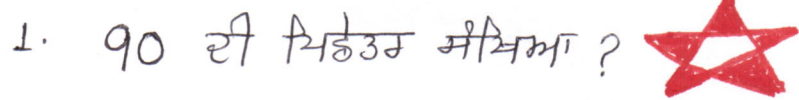 1. 90 ਦੀ ਪਿਛੇਤਰ ਸੰਖਿਆ ?